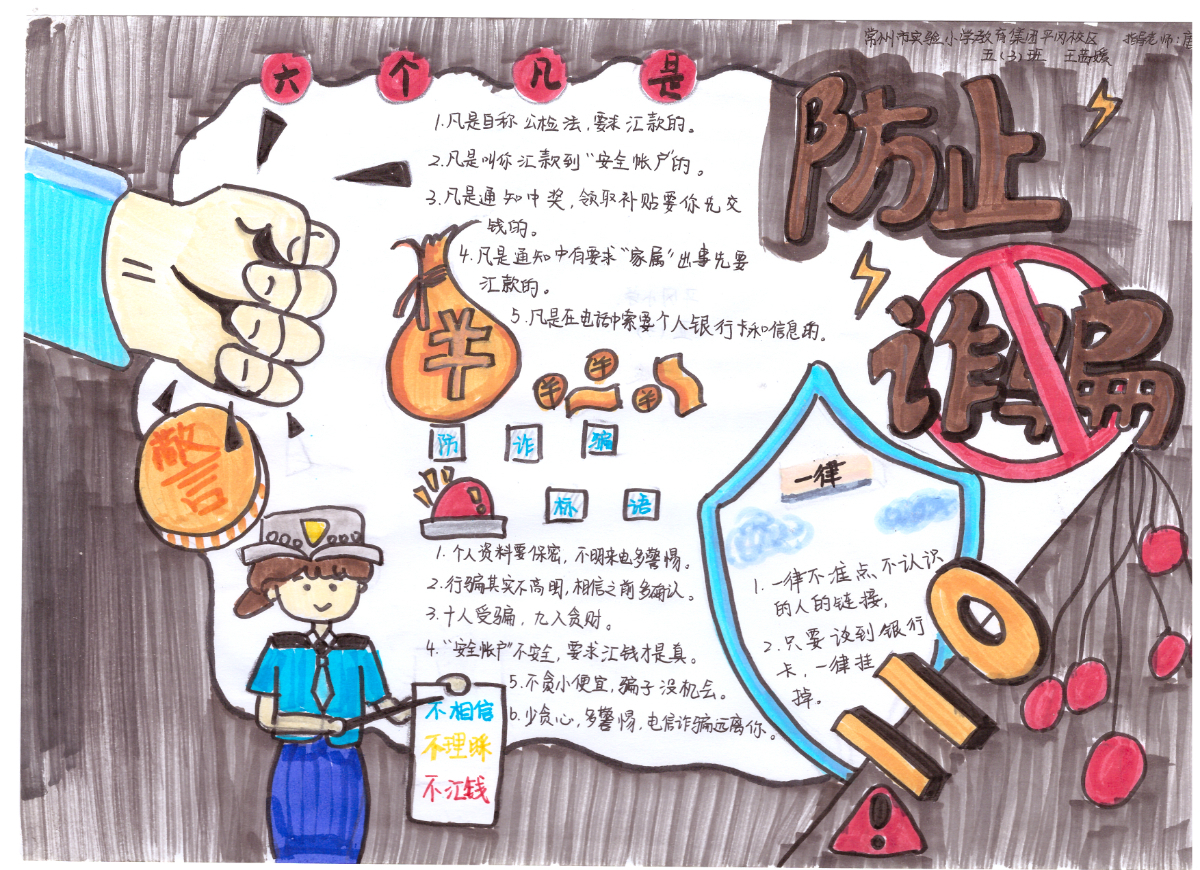 常州市实验小学教育集团平冈校区 指导老师:
五(3)班 王茜媛
防止
诈骗
六个凡是
1.凡是自称公检法,要求汇款的。
2.凡是叫你汇款到“安全帐户”的。
3.凡是通知中奖,领取补贴要你先交
钱的。
4.凡是通知中有要求“家属”出事先要
汇款的。
5.凡是在电话中索要个人银行卡和信息的。
羊
羊
羊
羊
警言
防诈骗
标语
1.个人资料要保密,不明来电多警惕。
2.行骗其实不高明,相信之前多确认。
3.十人受骗,九人贪财。
4.“安全帐户”不安全,要求汇钱才是真。
5.不贪小便宜,骗子没机会。
6.少贪心,多警惕,电信诈骗远离你。
不相信
不理睬
不汇钱
一律
1.一律不准点不认识
的人的链接,
2.只要谈到银行
卡,一律挂
掉。
110